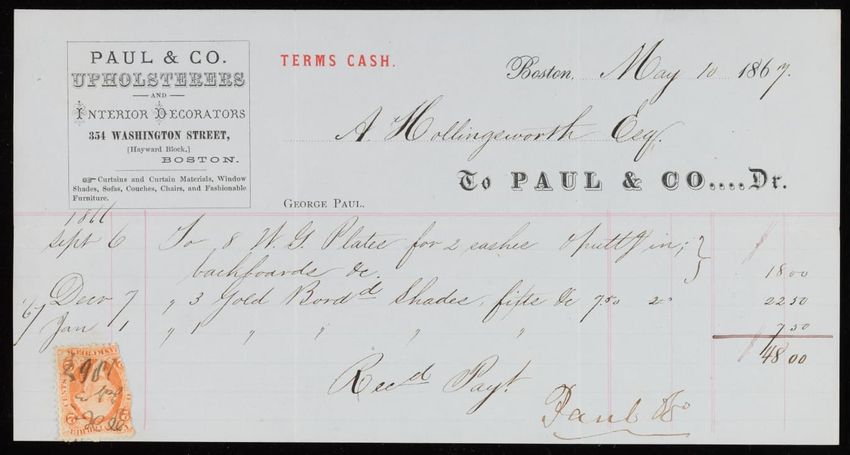 PAUL & CO.
UPHOLSTERERS
AND
INTERIOR DECORATORS
354 WASHINGTON STREET,
[Hayward Block,]
BOSTON.
☞ Curtains and Curtain Materials, Window
Shades, Sofas, Couches, Chairs, and Fashionable
Furniture.
TERMS CASH.
Boston, May 10 1867.
A. Hollingsworth Esq.
To PAUL & CO....Dr.
GEORGE PAUL.
1866
Sept 6 To 8 W. G. Plates for 2 sashes & putty in;
backboards &c. 18 00
Decr 7 " 3 Gold Bord'd Shades, &c 7 50 22 50
/67 Jan 1 " 1 " " " " 7 50
48 00
Rec'd Payt.
Paul & Co